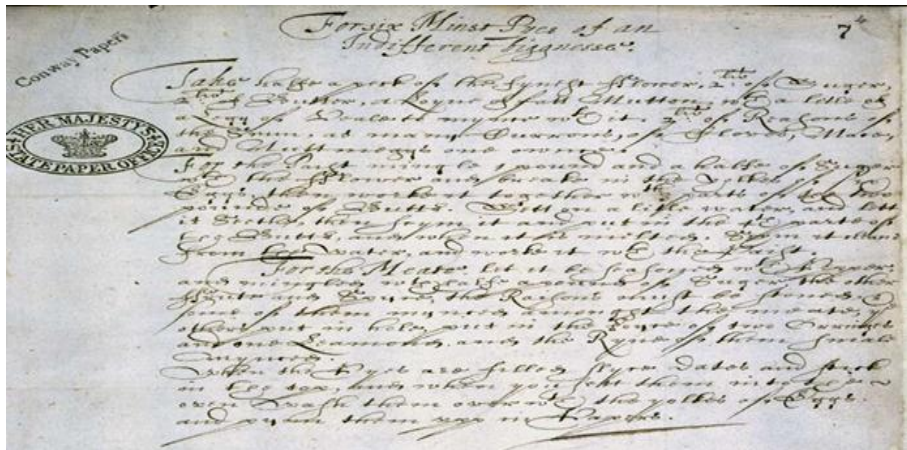 For six Minst Pyes of an
Indifferent biggnesse.
7
Conway Papers
HER MAJESTYS
STATE PAPER OFFICE
Take halfe a peck of the fynest Flower, 2 lb of Suger,
2 lb of Butter, a Loyne of fatt Mutton, wth a litle of
a Legg of Veale to mynce wth it, 2 lb of Reasons of
the Sunn, as many Currons, of Cloves, Mace,
and Nuttmeggs one ownce.
For the Paist mingle 1 pound and a halfe of Suger
wth the Flower and breake in the Yolkes of
Eggs, then worke it together wth
pounds of Butter. Sett on a litle water, and lett
it seethe, then skym it and put in the parte of
Butter, and when it is melted, Skym it cleane
from the water, and worke it wth the Paist.
For the Meate let it be seasoned wth Pepper
and mingled wth halfe a pound of Suger the other
Fruite and Spice, the Raisons must be stoned, &
some of them mynced amongst the meate, the
others put in hole, put in the Joyce of two Orringes
and one Leamond, and the Ryne of them smale
mynced.
When the Pyes are filled slyce dates and stick
in the top, and when you sett them into the
oven Wash them over wth the yolkes of Eggs,
and pynn them upp in Papers.